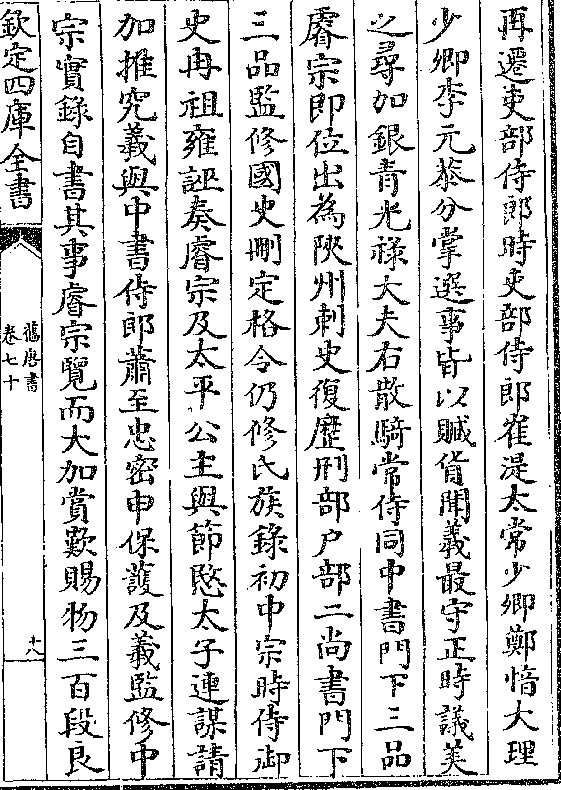 再遷吏部侍郎時吏部侍郎崔湜太常少卿鄭愔大理
少卿李元恭分掌選事皆以贓貨聞義最守正時議美
之尋加銀青光祿大夫右散騎常侍同中書門下三品
睿宗即位出為陜州刺史復歷刑部戶部二尚書門下
三品監修國史刪定格令仍修氏族錄初中宗時侍御
史冉祖雍誣奏睿宗及太平公主與節愍太子連謀請
加推究義與中書侍郎蕭至忠密申保護及義監修中
宗實錄自書其事睿宗覽而大加賞歎賜物三百段良
欽定四庫全書
舊唐書
卷七十
十八